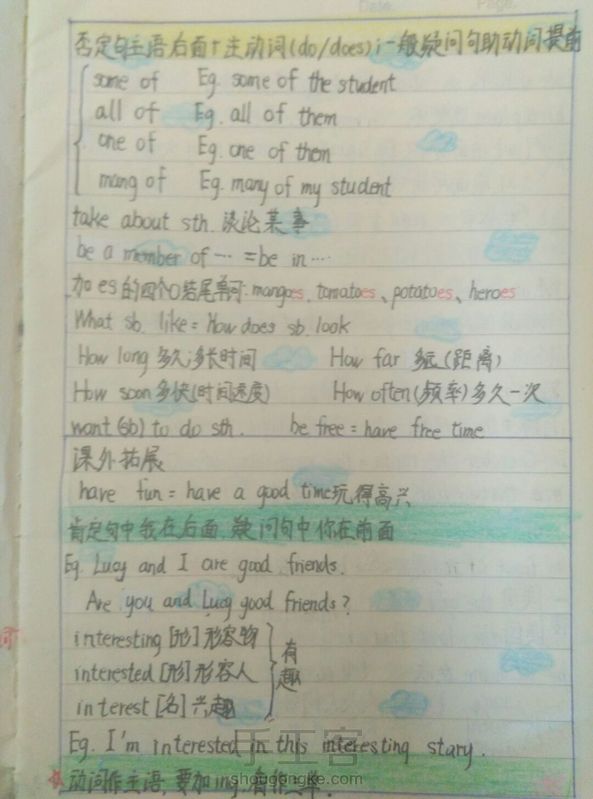 Date: Page.
否定句主语后面+主动词(do/does);一般疑问句助动词提前
some of Eg. some of the student
all of Eg. all of them
one of Eg. one of them
mang of Eg. many of my student
take about sth. 谈论某事
be a member of … = be in …
加es的四个O结尾单词: mangoes、tomatoes、potatoes、heroes
What sb. like = How does sb. look
How long 多久;多长时间 How far 多远(距离)
How soon 多快(时间速度) How often(频率)多久一次
want (sb) to do sth. be free = have free time
课外拓展
have fun = have a good time玩得高兴
肯定句中我在后面,疑问句中你在前面
Eg. Lucy and I are good friends.
Are you and Lucy good friends?
interesting [形]形容物
interested [形]形容人
有趣
interest [名]兴趣
Eg. I'm interested in this interesting stary.
动词作主语,要加ing,看作三单.
手工客
shougongke.com